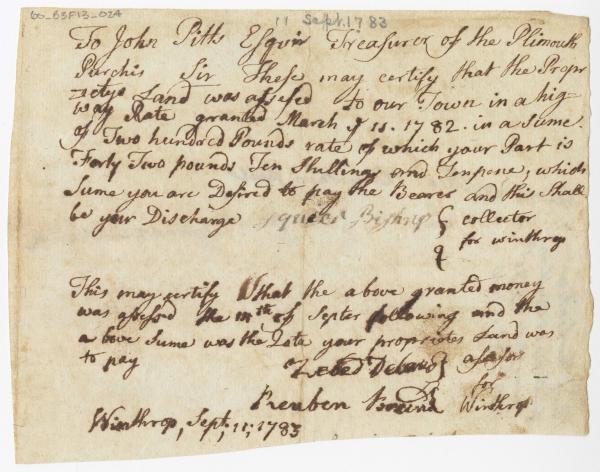 60-63F13-024
11 Sept. 1783
To John Pitts Esqur Treasurer of the Plimouth
Purchis Sir These may certify that the Propr
ietys Land was assesed to our Town in a hig-
way Rate granted March ye 11. 1782. in a sume
of Two hundred Pounds rate of which your Part is
Forty Two pounds Ten Shillings and Tenpene, which
Sume you are Desired to pay the Bearer and this Shall
be your Discharge Squier Bishop collector
for winthrop
This may certify that the above granted money
was assesed the of Septer following and the
above Sume was the Rate your proprietes Land was
to pay
Zebed asesor
Reuben for Winthrop
Winthrop, Sept, 11; 1783